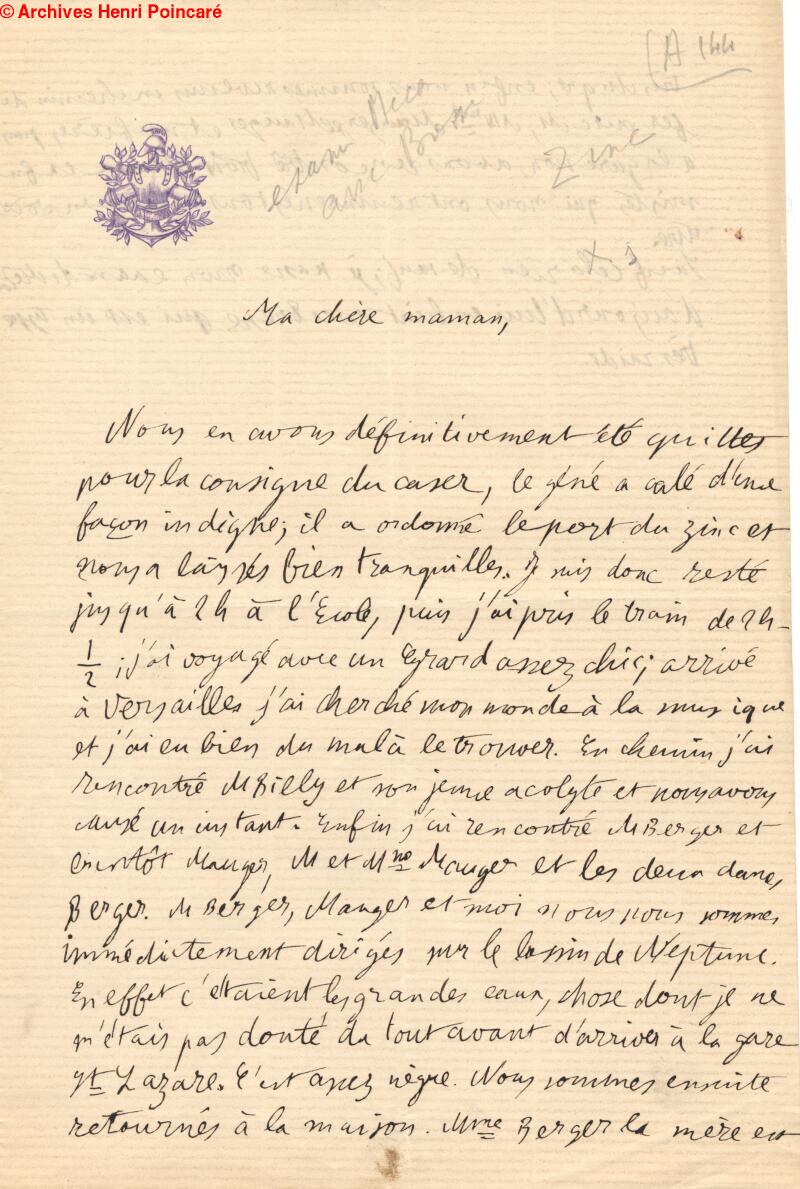 © Archives Henri Poincaré
(A 144
exam Meca
avec Bresse
Zinc
Ma chère maman,
Nous en avons définitivement été quittes
pour la consigne du caser, le géné a calé d'une
façon indigne; il a ordonné le port du zinc et
nous a laissés bien tranquilles. Je suis donc resté
jusqu'à 2h à l'École, puis j'ai pris le train de 2h
1/2; j'ai voyagé avec un Grard assez chic; arrivé
à Versailles j'ai cherché mon monde à la musique
et j'ai eu bien du mal à le trouver. En chemin j'ai
rencontré M Billy et son jeune acolyte et nous avons
causé un instant. Enfin j'ai rencontré M Berger et
bientôt Mauger, M et Mme Mauger et les deux dames
Berger. M Berger, Mauger et moi nous nous sommes
immédiatement dirigés sur le bassin de Neptune.
En effet c'étaient les grandes eaux, chose dont je ne
m'étais pas douté du tout avant d'arriver à la gare
St Lazare. C'est assez nègre. Nous sommes ensuite
retournés à la maison. Mme Berger la mère est